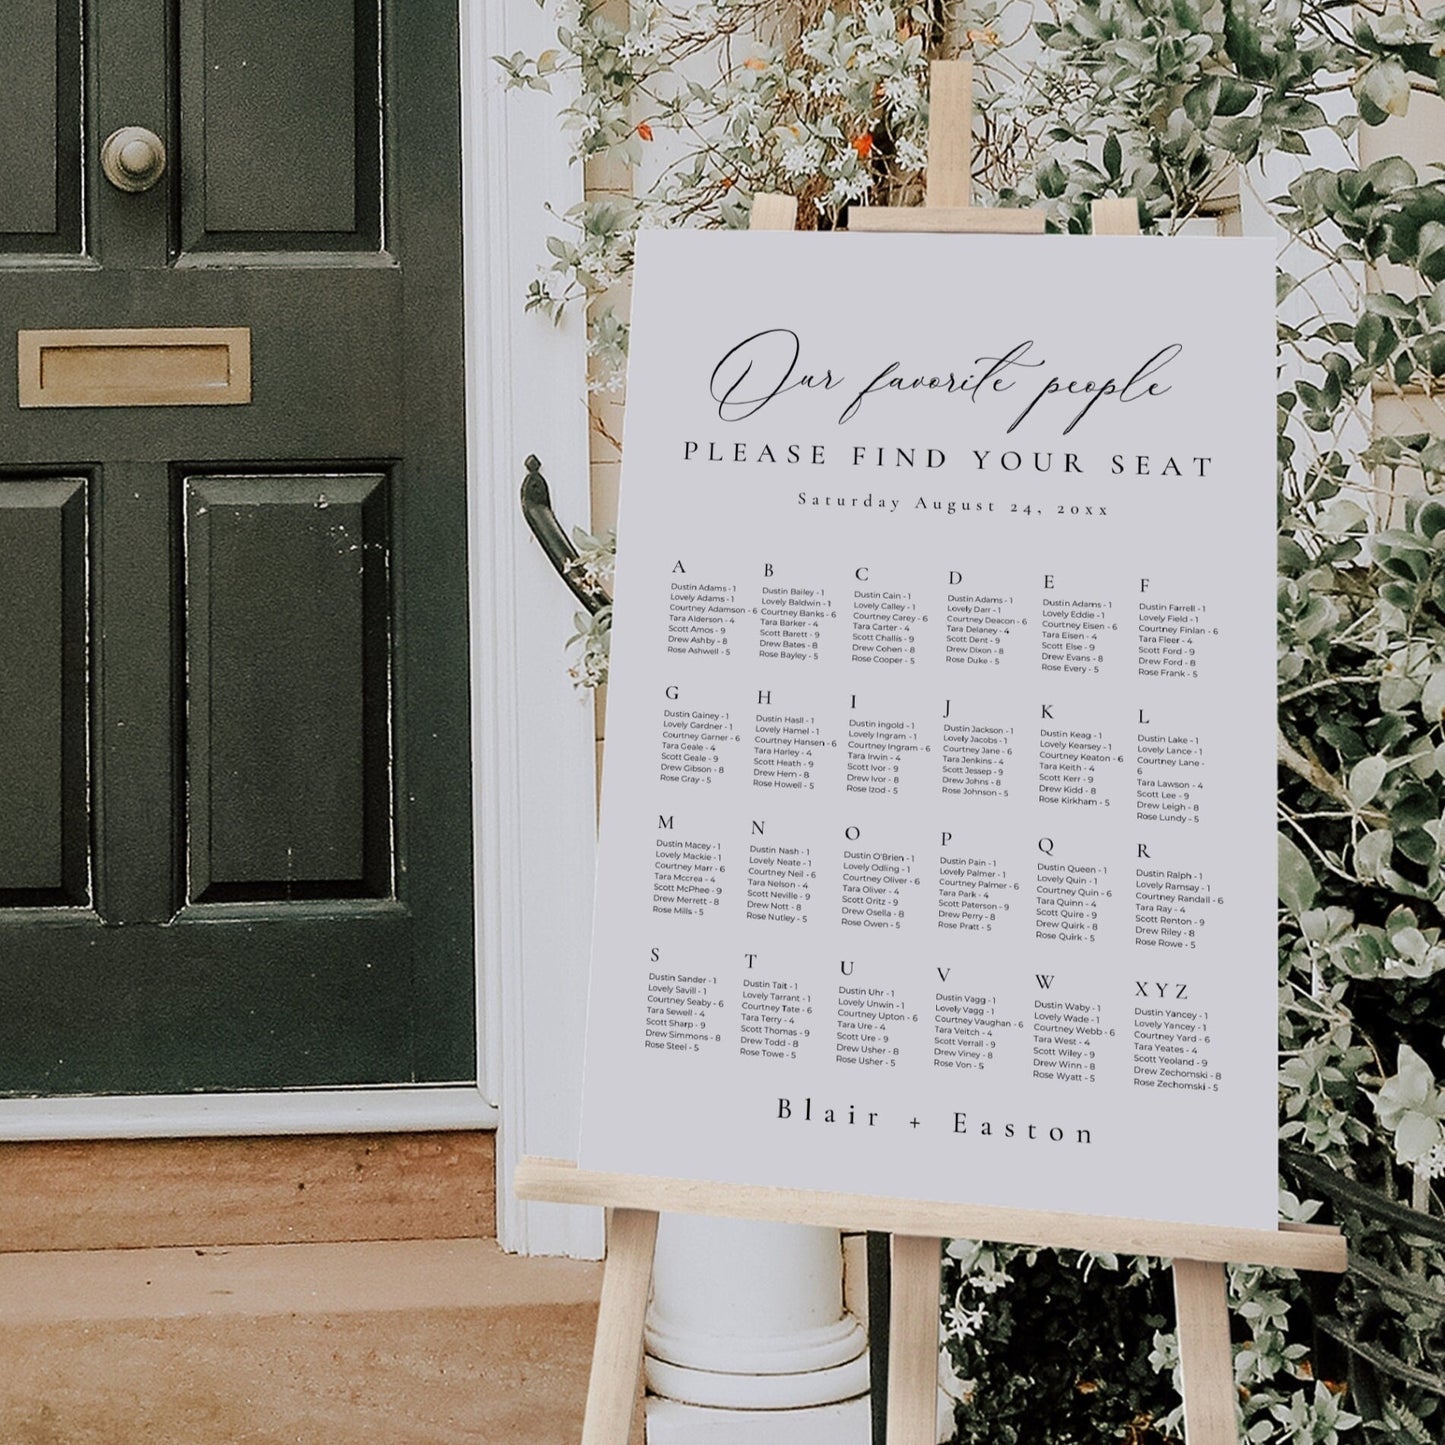 Our favorite people
PLEASE FIND YOUR SEAT
Saturday August 24, 20xx
A
Dustin Adams - 1
Lovely Adams - 1
Courtney Adamson - 6
Tara Alderson - 4
Scott Amos - 9
Drew Ashby - 8
Rose Ashwell - 5
B
Dustin Bailey - 1
Lovely Baldwin - 1
Courtney Banks - 6
Tara Barker - 4
Scott Barett - 9
Drew Bates - 8
Rose Bayley - 5
C
Dustin Cain - 1
Lovely Calley - 1
Courtney Carey - 6
Tara Carter - 4
Scott Challis - 9
Drew Cohen - 8
Rose Cooper - 5
D
Dustin Adams - 1
Lovely Darr - 1
Courtney Deacon - 6
Tara Delaney - 4
Scott Dent - 9
Drew Dixon - 8
Rose Duke - 5
E
Dustin Adams - 1
Lovely Eddie - 1
Courtney Eisen - 6
Tara Eisen - 4
Scott Else - 9
Drew Evans - 8
Rose Every - 5
F
Dustin Farrell - 1
Lovely Field - 1
Courtney Finlan - 6
Tara Fleer - 4
Scott Ford - 9
Drew Ford - 8
Rose Frank - 5
G
Dustin Gainey - 1
Lovely Gardner - 1
Courtney Garner - 6
Tara Geale - 4
Scott Geale - 9
Drew Gibson - 8
Rose Gray - 5
H
Dustin Hasll - 1
Lovely Hamel - 1
Courtney Hansen - 6
Tara Harley - 4
Scott Heath - 9
Drew Hem - 8
Rose Howell - 5
I
Dustin Ingold - 1
Lovely Ingram - 1
Courtney Ingram - 6
Tara Irwin - 4
Scott Ivor - 9
Drew Ivor - 8
Rose Izod - 5
J
Dustin Jackson - 1
Lovely Jacobs - 1
Courtney Jane - 6
Tara Jenkins - 4
Scott Jessep - 9
Drew Johns - 8
Rose Johnson - 5
K
Dustin Keag - 1
Lovely Kearsey - 1
Courtney Keaton - 6
Tara Keith - 4
Scott Kerr - 9
Drew Kidd - 8
Rose Kirkham - 5
L
Dustin Lake - 1
Lovely Lance - 1
Courtney Lane -
6
Tara Lawson - 4
Scott Lee - 9
Drew Leigh - 8
Rose Lundy - 5
M
Dustin Macey - 1
Lovely Mackie - 1
Courtney Marr - 6
Tara Mccrea - 4
Scott McPhee - 9
Drew Merrett - 8
Rose Mills - 5
N
Dustin Nash - 1
Lovely Neate - 1
Courtney Neil - 6
Tara Nelson - 4
Scott Neville - 9
Drew Nott - 8
Rose Nutley - 5
O
Dustin O'Brien - 1
Lovely Odling - 1
Courtney Oliver - 6
Tara Oliver - 4
Scott Oritz - 9
Drew Osella - 8
Rose Owen - 5
P
Dustin Pain - 1
Lovely Palmer - 1
Courtney Palmer - 6
Tara Park - 4
Scott Paterson - 9
Drew Perry - 8
Rose Pratt - 5
Q
Dustin Queen - 1
Lovely Quin - 1
Courtney Quin - 6
Tara Quinn - 4
Scott Quire - 9
Drew Quirk - 8
Rose Quirk - 5
R
Dustin Ralph - 1
Lovely Ramsay - 1
Courtney Randall - 6
Tara Ray - 4
Scott Renton - 9
Drew Riley - 8
Rose Rowe - 5
S
Dustin Sander - 1
Lovely Savill - 1
Courtney Seaby - 6
Tara Sewell - 4
Scott Sharp - 9
Drew Simmons - 8
Rose Steel - 5
T
Dustin Tait - 1
Lovely Tarrant - 1
Courtney Tate - 6
Tara Terry - 4
Scott Thomas - 9
Drew Todd - 8
Rose Towe - 5
U
Dustin Uhr - 1
Lovely Unwin - 1
Courtney Upton - 6
Tara Ure - 4
Scott Ure - 9
Drew Usher - 8
Rose Usher - 5
V
Dustin Vagg - 1
Lovely Vagg - 1
Courtney Vaughan - 6
Tara Veitch - 4
Scott Verrall - 9
Drew Viney - 8
Rose Von - 5
W
Dustin Waby - 1
Lovely Wade - 1
Courtney Webb - 6
Tara West - 4
Scott Wiley - 9
Drew Winn - 8
Rose Wyatt - 5
XYZ
Dustin Yancey - 1
Lovely Yancey - 1
Courtney Yard - 6
Tara Yeates - 4
Scott Yeoland - 9
Drew Zechomski - 8
Rose Zechomski - 5
Blair + Easton